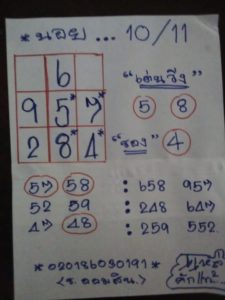 *นอย ... 10/11
6
9 5* 7*
2 8* 4*
"เด่นวิ่ง"
5 8
"รอง" 4
57 58 : 658 957
52 59 : 248 647
47 48 : 259 552
*020186030191
(ธ.ออมสิน.)